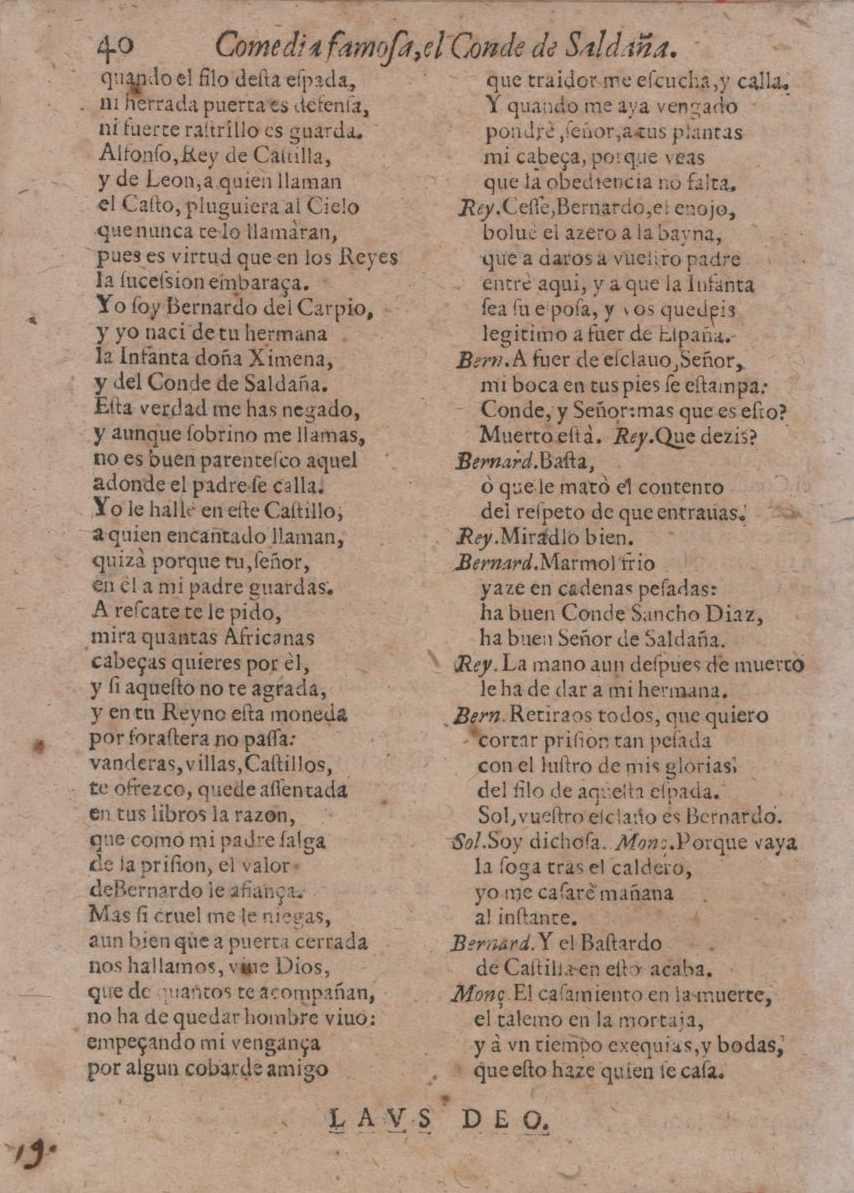 40 Comedia famoſa, el Conde de Saldaña.
quando el filo deſta eſpada,
ni herrada puerta es defenſa,
ni fuerte raſtrillo es guarda.
Alfonſo, Rey de Caſtilla,
y de Leon, a quien llaman
el Caſto, pluguiera al Cielo
que nunca te lo llamàran,
pues es virtud que en los Reyes
la ſuceſsion embaraça.
Yo ſoy Bernardo del Carpio,
y yo naci de tu hermana
la Infanta doña Ximena,
y del Conde de Saldaña.
Eſta verdad me has negado,
y aunque ſobrino me llamas,
no es buen parenteſco aquel
adonde el padre ſe calla.
Yo le hallè en eſte Caſtillo,
a quien encantado llaman,
quizà porque tu, ſeñor,
en èl a mi padre guardas.
A reſcate te le pido,
mira quantas Africanas
cabeças quieres por èl,
y ſi aqueſto no te agrada,
y en tu Reyno eſta moneda
por foraſtera no paſſa:
vanderas, villas, Caſtillos,
te ofrezco, quede aſſentada
en tus libros la razon,
que como mi padre ſalga
de la priſion, el valor
de Bernardo le afiança.
Mas ſi cruel me le niegas,
aun bien que a puerta cerrada
nos hallamos, viue Dios,
que de quantos te acompañan,
no ha de quedar hombre viuo:
empeçando mi vengança
por algun cobarde amigo
que traidor me eſcucha, y calla.
Y quando me aya vengado
pondrè, ſeñor, a tus plantas
mi cabeça, porque veas
que la obediencia no falta.
Rey. Ceſſe, Bernardo, el enojo,
bolue el azero a la bayna,
que a daros a vueſtro padre
entrè aqui, y a que la Infanta
ſea ſu eſpoſa, y vos quedeis
legitimo a fuer de Eſpaña.
Bern. A fuer de eſclauo, Señor,
mi boca en tus pies ſe eſtampa:
Conde, y Señor: mas que es eſto?
Muerto eſtà. Rey. Que dezis?
Bernard. Baſta,
ò que le matò el contento
del reſpeto de que entrauas.
Rey. Miradlo bien.
Bernard. Marmol frio
yaze en cadenas peſadas:
ha buen Conde Sancho Diaz,
ha buen Señor de Saldaña.
Rey. La mano aun deſpues de muerto
le ha de dar a mi hermana.
Bern. Retiraos todos, que quiero
cortar priſion tan peſada
con el luſtro de mis glorias,
del filo de aqueſta eſpada.
Sol, vueſtro eſclauo es Bernardo.
Sol. Soy dichoſa. Monç. Porque vaya
la ſoga tras el caldero,
yo me caſarè mañana
al inſtante.
Bernard. Y el Baſtardo
de Caſtilla en eſto acaba.
Monç. El caſamiento en la muerte,
el talemo en la mortaja,
y à vn tiempo exequias, y bodas,
que eſto haze quien ſe caſa.
LAVS DEO.
19.